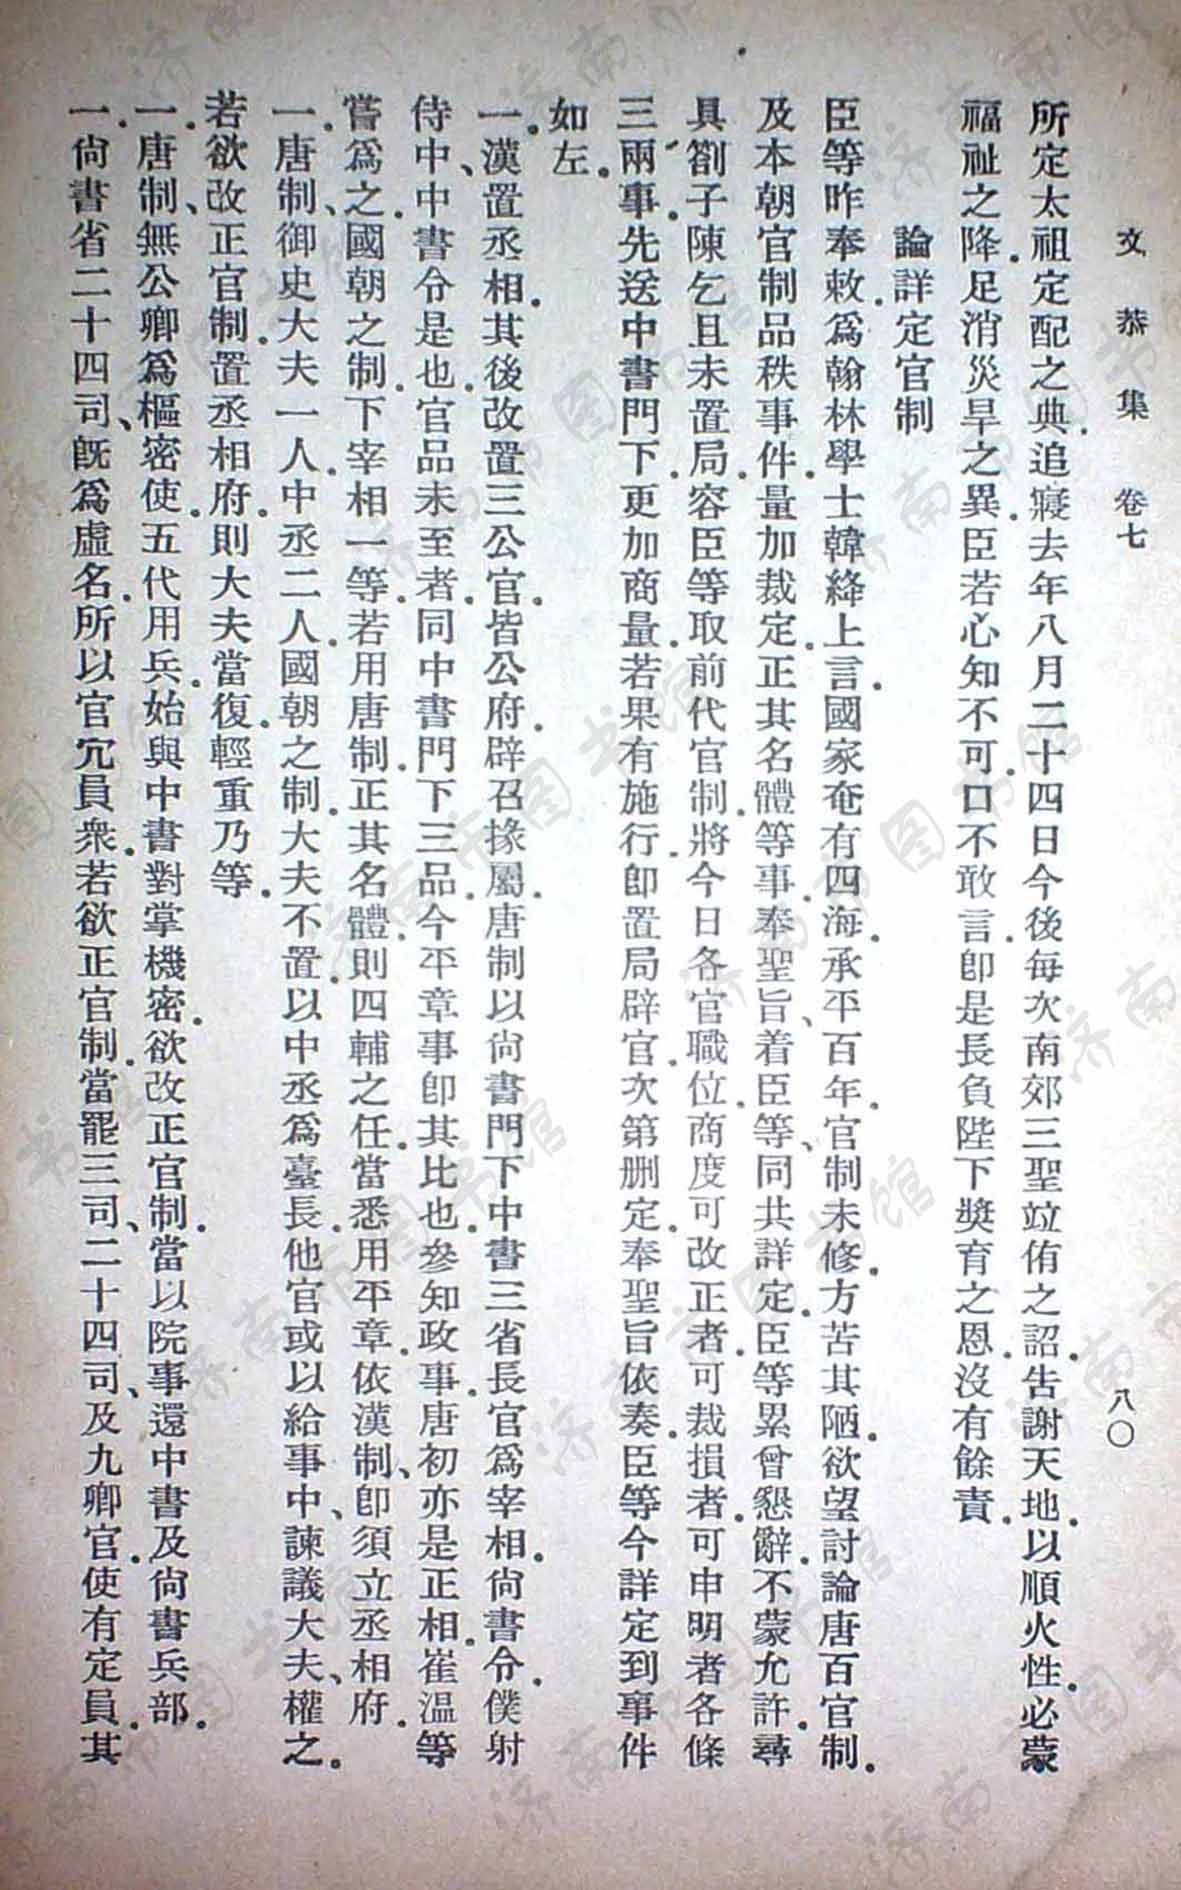 文恭集 卷七 八〇
所定太祖定配之典追寢去年八月二十四日今後每次南郊三聖竝侑之詔告謝天地以順火性必蒙
福祉之降足消災旱之異臣若心知不可口不敢言卽是長負陛下奬育之恩沒有餘責
論詳定官制
臣等昨奉敕爲翰林學士韓絳上言國家奄有四海承平百年官制未修方苦其陋欲望討論唐百官制
及本朝官制品秩事件量加裁定正其名體等事奉聖旨着臣等同共詳定臣等累曾懇辭不蒙允許尋
具劄子陳乞且未置局容臣等取前代官制將今日各官職位商度可改正者可裁損者可申明者各條
三兩事先送中書門下更加商量若果有施行卽置局辟官次第删定奉聖旨依奏臣等今詳定到事件
如左
一漢置丞相其後改置三公官皆公府辟召掾屬唐制以尚書門下中書三省長官爲宰相尚書令僕射
侍中中書令是也官品未至者同中書門下三品今平章事卽其比也參知政事唐初亦是正相崔溫等
嘗爲之國朝之制下宰相一等若用唐制正其名體則四輔之任當悉用平章依漢制卽須立丞相府
一唐制御史大夫一人中丞二人國朝之制大夫不置以中丞爲臺長他官或以給事中諫議大夫權之
若欲改正官制置丞相府則大夫當復輕重乃等
一唐制無公卿爲樞密使五代用兵始與中書對掌機密欲改正官制當以院事還中書及尚書兵部
一尚書省二十四司旣爲虛名所以官冗員衆若欲正官制當罷三司二十四司及九卿官使有定員其